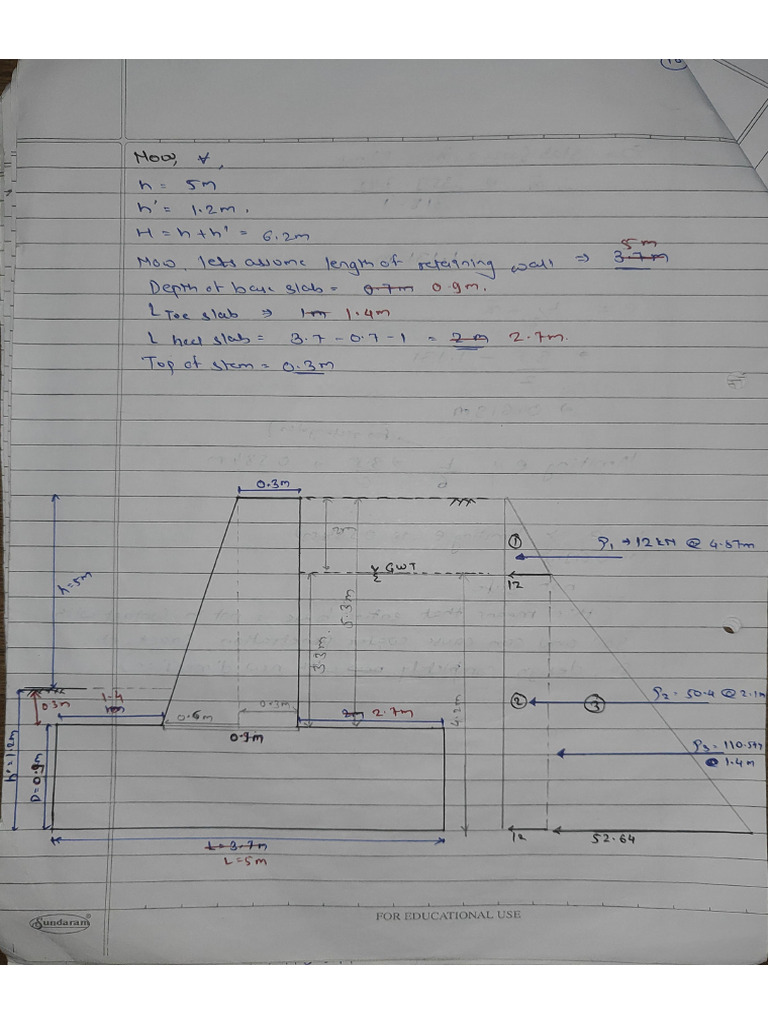 Now, ∀,
h = 5m
h' = 1.2m.
H = h + h' = 6.2m
Now, lets assume length of retaining wall ⇒ 3.7m 5m
Depth of base slab = 0.7m 0.9m.
L Toe slab ⇒ 1m 1.4m
L heel slab = 3.7 - 0.7 - 1 = 2m 2.7m.
Top of stem = 0.3m
0.3m
2m
① P1 → 12 kN @ 4.87m
GWT
12
h=5m
5.3m
3.3m.
0.3m
1.4
0.6m
0.3m
2m 2.7m
0.9m
4.2m
② P2 = 50.4 @ 2.1m
③
P3 = 110.544
@ 1.4m
h'=1.2m
D=0.9m
12
52.64
L=3.7m
L=5m
Sundaram®
FOR EDUCATIONAL USE